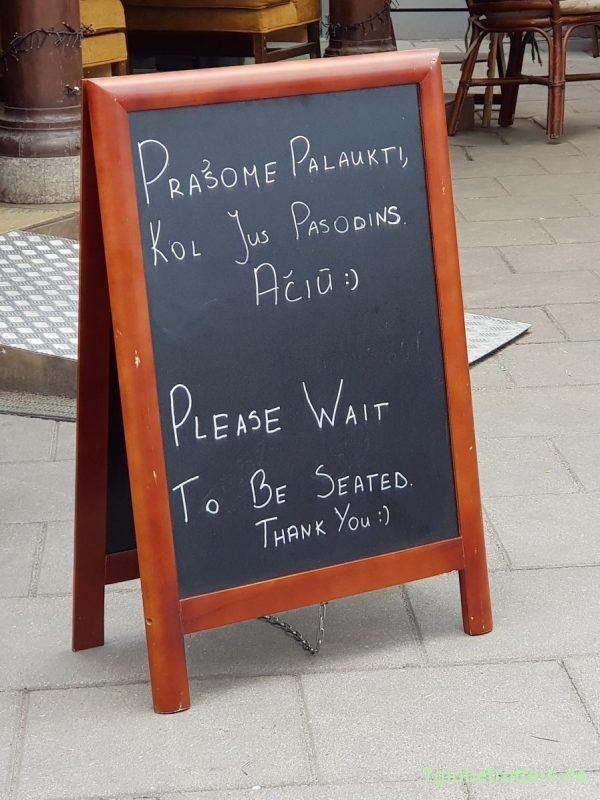 PRAŠOME PALAUKTI,
KOL JUS PASODINS.
AČIŪ :)
PLEASE WAIT
TO BE SEATED.
THANK YOU :)